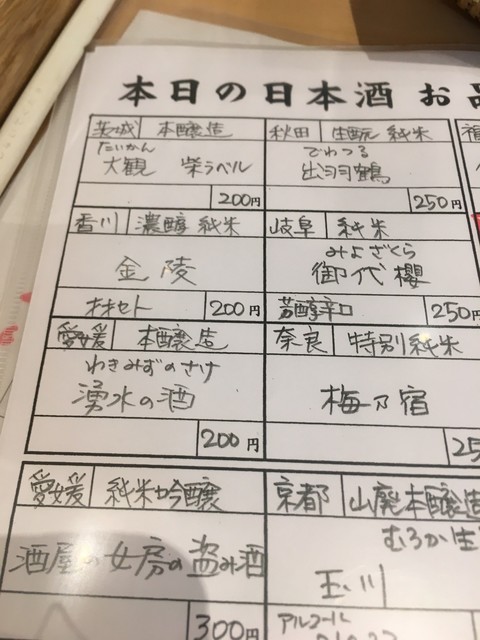 本日の日本酒 お
茨城 本醸造
たいかん
大観 柴ラベル
200円
秋田 生酛 純米
でわつる
出羽鶴
250円
香川 濃醇 純米
金陵
オオセト 200円
岐阜 純米
みよざくら
御代櫻
芳醇辛口 250円
愛媛 本醸造
わきみずのさけ
湧水の酒
200円
奈良 特別純米
梅乃宿
25
愛媛 純米吟醸
酒屋の女房の盗み酒
300円
京都 山廃本醸造
むろか生
玉川
アルコール